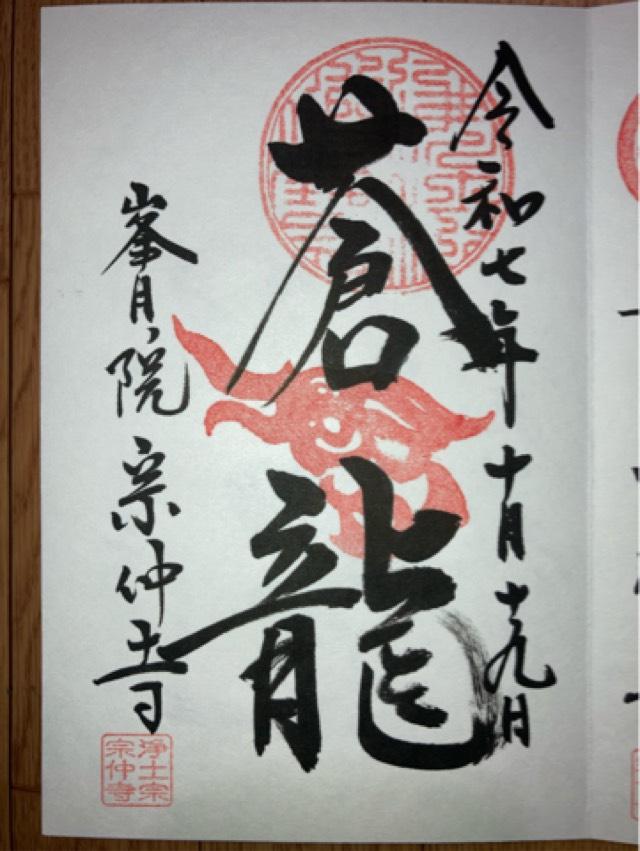 令和七年十月十九日
蒼龍
峯月院宗仲寺
浄土宗
宗仲寺